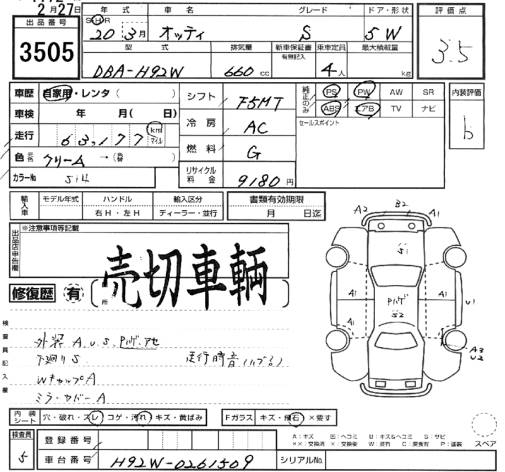 2月27日
出品番号 年式 車名 グレード ドア・形状 評価点
3505 SHR 20年3月 オッティ S 5W 3.5
型式 排気量 新車保証書 有無記入 乗車定員 最大積載量
DBA-H92W 660cc 4人 kg
車歴 自家用・レンタ( ) シフト F5MT 純正のみ PS PW AW SR 内装評価
車検 年 月( 日) 冷房 AC ABS エアB TV ナビ b
走行 63,177 km マイル 燃料 G セールスポイント
色 元色 クリーム →(替 ) リサイクル料金 9180円
カラーNo
輸入車 モデル年式 ハンドル 輸入区分 書類有効期限
右H・左H ディーラー・並行 月 日迄
出品店申告欄 ※注意事項等記載
売切車輌
修復歴 有
検査員記入欄
外装 A.U.S.
下廻りS 走行時音(ハブ)
WキャップA
ミラーカバーA
A2 B2 A1
A1 S1
A1 A1 U1
S2
A1 A1 A3
U2
内装シート 穴・破れ・スレ コゲ・汚れ キズ・黄ばみ Fガラス キズ・飛石 ×要す
スペア
検査員 5 登録番号
車台番号 H92W-0261509 シリアルNo